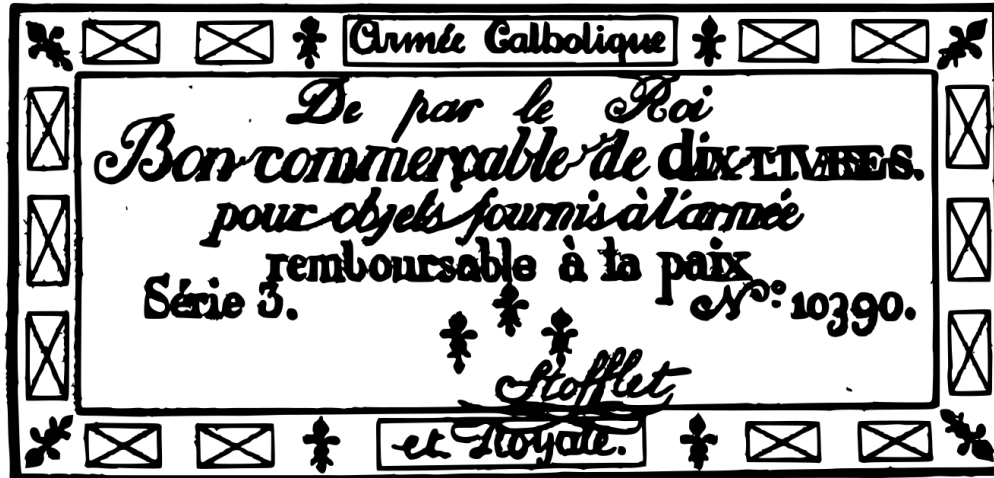 Armée Catholique
De par le Roi
Bon commerçable de dix LIVRES.
pour objets fournis à l'armée
remboursable à la paix
Série 3. N.º: 10390.
Stofflet
et Royale.